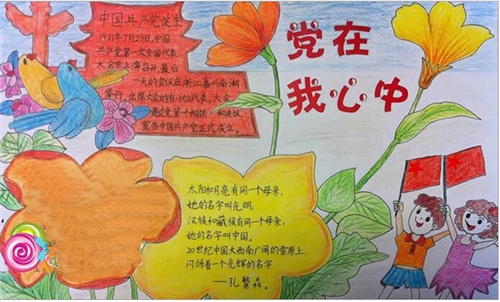 中国共产党诞生
1921年7月23日,中国
共产党第一次全国代表
大会在上海召开,最后
一天的会议在浙江嘉兴南湖
举行,出席大会的有13位代表,大会
通过党第一个纲领和决议,
宣告中国共产党正式成立。
党在
我心中
太阳和月亮有同一个母亲,
她的名字叫光明;
汉族和藏族有同一个母亲,
她的名字叫中国。
20世纪中国大西南广阔的雪原上,
闪烁着一个光辉的名字
——孔繁森。